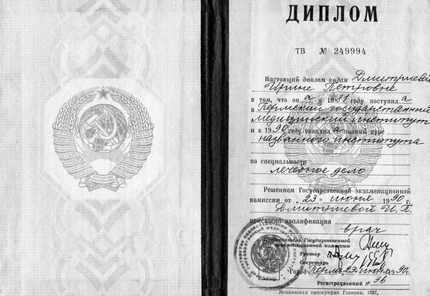 ДИПЛОМ
ТВ № 249994
Настоящий диплом выдан Дмитриевой
Ирине Петровне
в том, что он а в 19 году поступил а
в Пермский государственный
медицинский институт
и в 1990 году окончил а полный курс
названного института
по специальности
лечебное дело
Решением Государственной экзаменационной
комиссии от 23 июня 1990 г.
Дмитриевой И.
присвоена квалификация
врач
Председатель Государственной
экзаменационной комиссии
Ректор
Секретарь
Город Пермь июня 1990 г.
Регистрационный № 36
Московская типография Гознака. 1987.